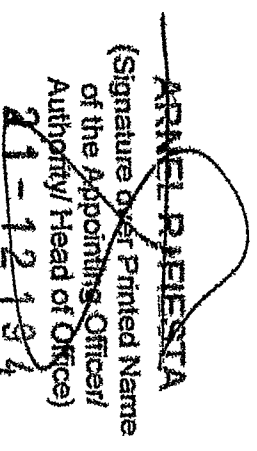 ARNEL P. FIESTA
(Signature over Printed Name
of the Appointing Officer/
Authority/ Head of Office)
21-12194